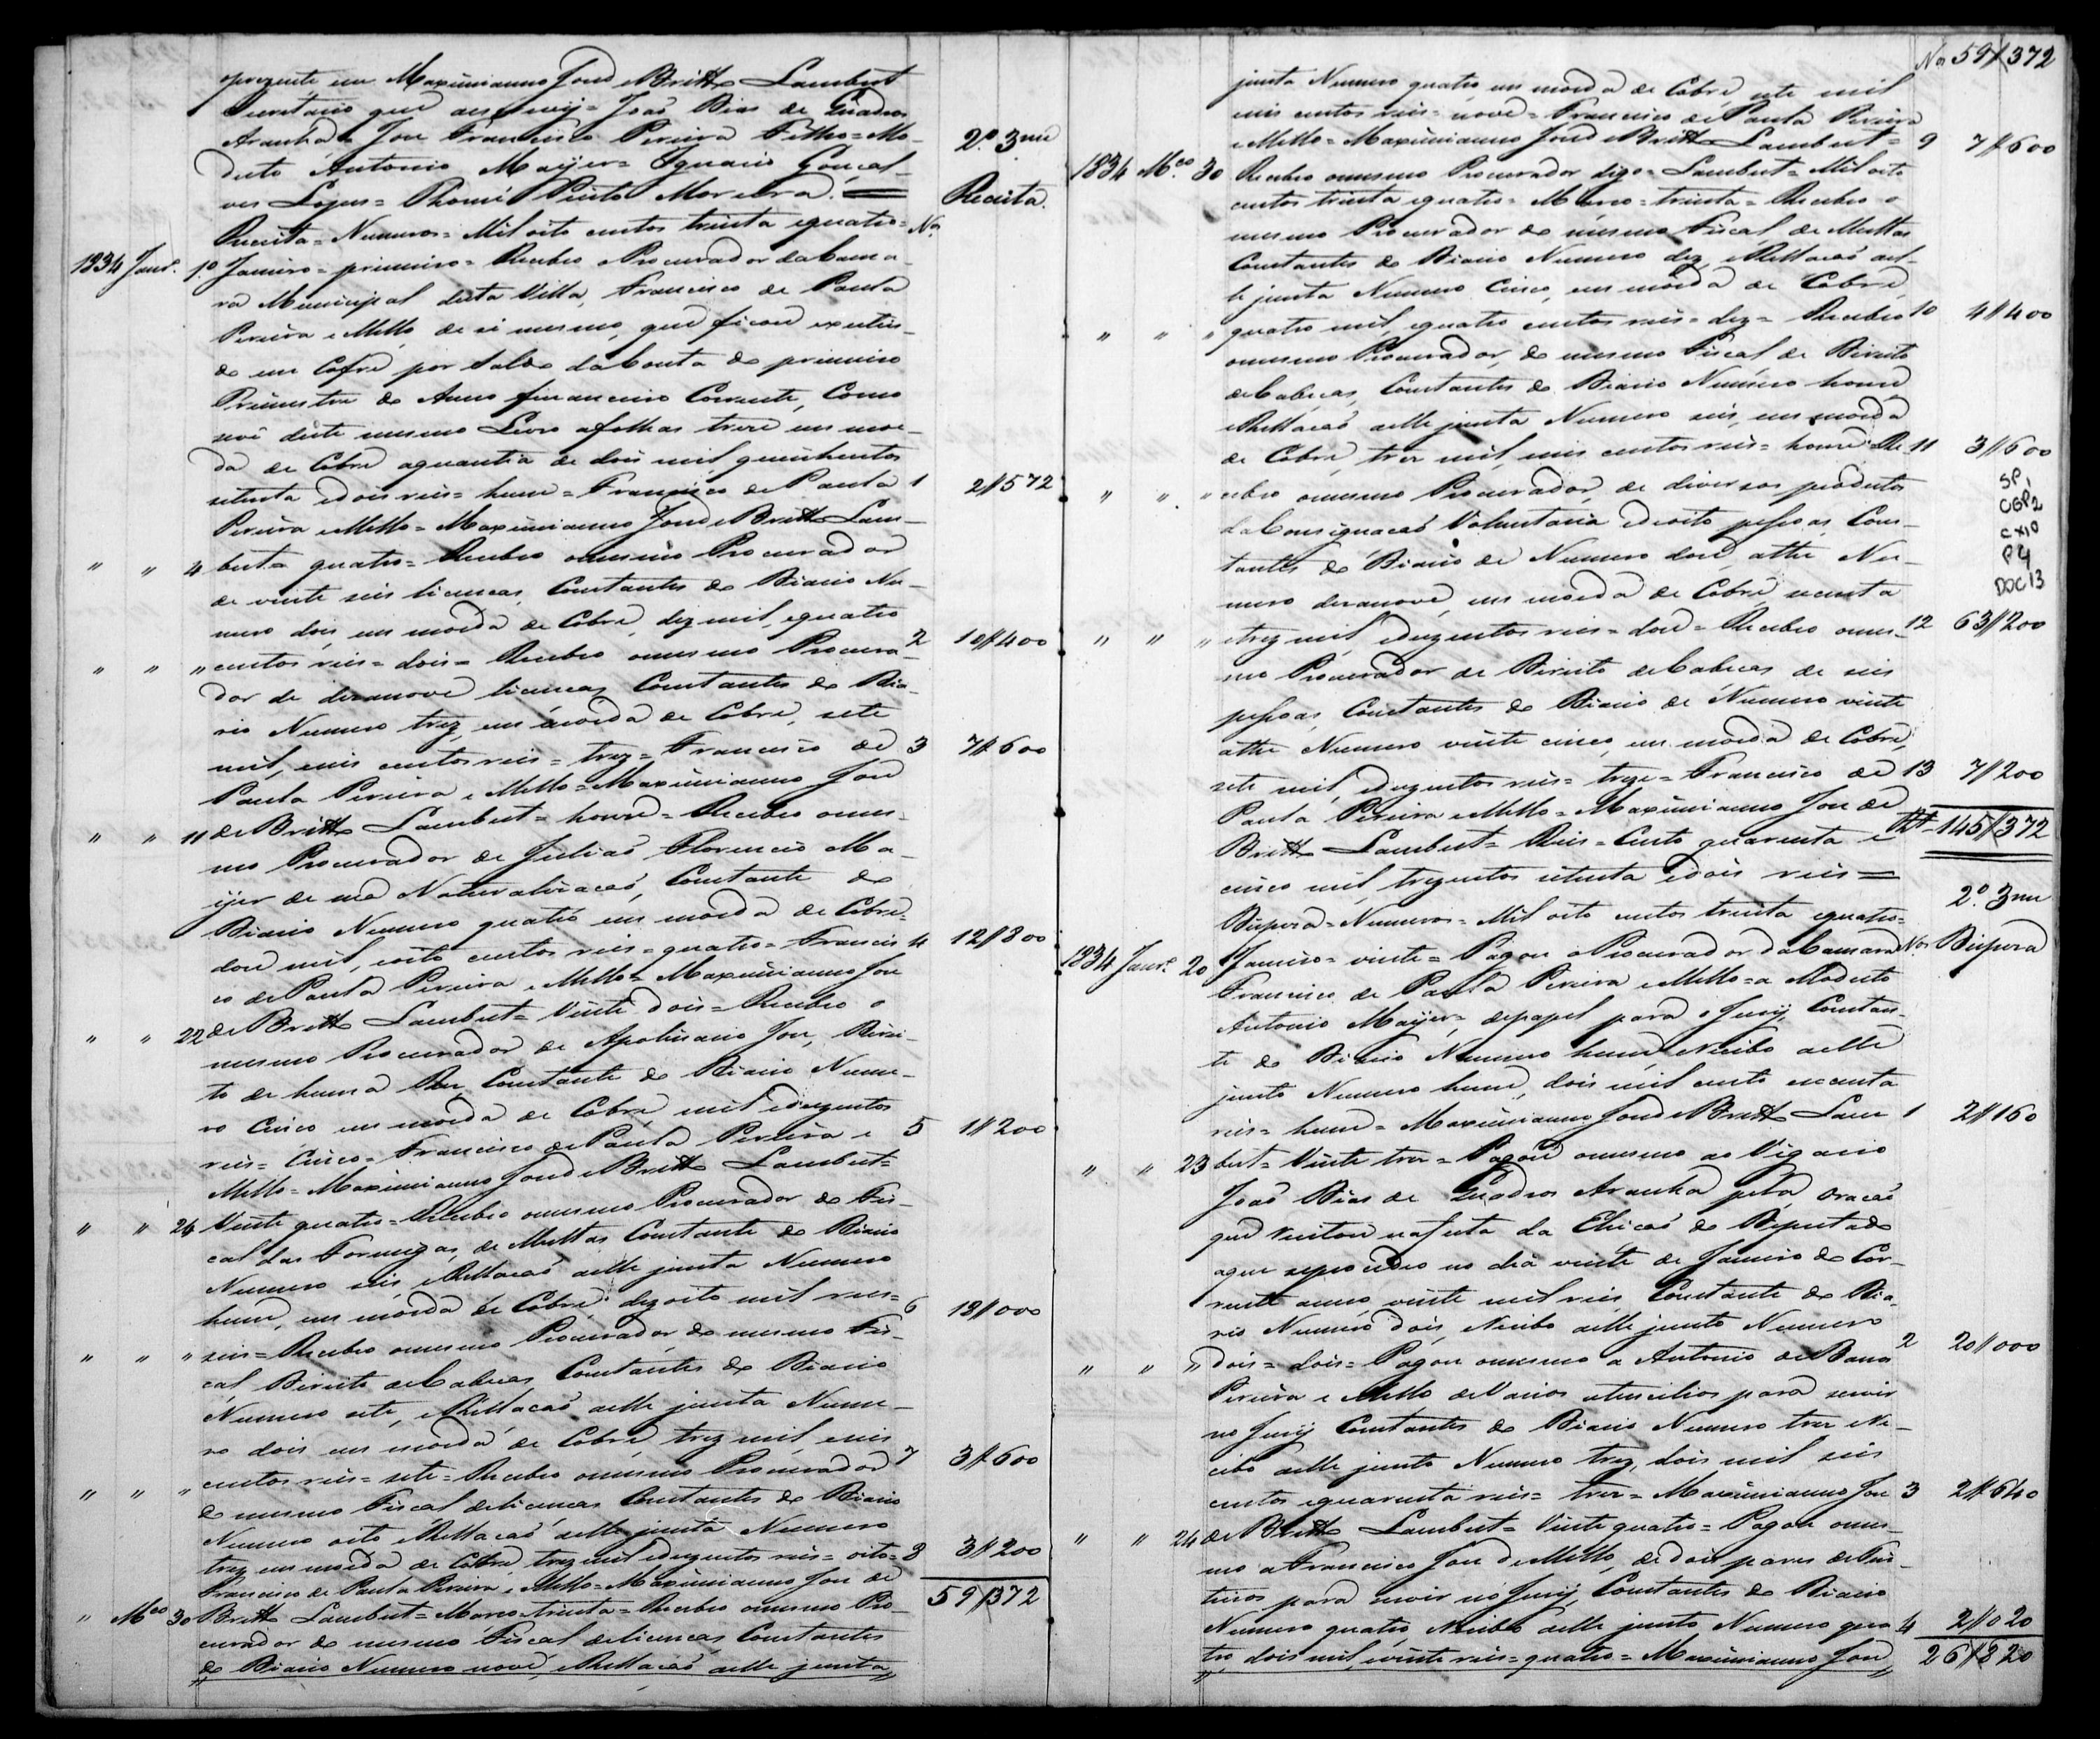 prezente, eu Maximianno Joze de Britto Lambert
Secretario que escrevy = João Dias de Quadros
Aranha = Joze Francisco Pereira Filho = Mo-
desto Antonio Mayer = Ignacio Gonçal-
ves Lopes = Thomé Pinto Moreira =
2º 3me
Receita.
Receita = Numeros = Mil oito centos trinta e quatro = Nos
1834 Janrº 1º Janeiro = primeiro = Recebeo o Procurador da Cama-
ra Municipal desta Villa, Francisco de Paula
Pereira e Mello, de si mesmo, que ficou existin-
do em Cofre por Saldo da Conta do primeiro
Trimestre do Anno financeiro Corrente, Como
se vê deste mesmo Livro a folhas treze em moe-
da de Cobre a quantia de dois mil, quinhentos
setenta e dois reis = hum = Francisco de Paula 1 2//572
Pereira e Mello = Maximianno Joze de Britto Lam-
" " 4 bert = quatro = Recebeo o mesmo Procurador
de vinte seis licenças, Constantes do Diario Nu-
mero dois, em moeda de Cobre, dez mil, e quatro
" " " centos reis = dois = Recebeo o mesmo Procura- 2 10//400
dor de dezanove licenças Constantes do Dia-
rio Numero trez, em moeda de Cobre, sete
mil, e seis centos reis = trez = Francisco de 3 7//600
Paula Pereira e Mello = Maximianno Joze
" " 11 de Britto Lambert = honze = Recebeo o mes-
mo Procurador de Julião Florencio Ma-
yer de sua Naturalização, Constante do
Diario Numero quatro em moeda de Cobre =
doze mil, oito centos reis = quatro = Francis 4 12//800
co de Paula Pereira e Mello = Maximianno Joze
" " 22 de Britto Lambert = Vinte dois = Recebeo o
mesmo Procurador de Apolinario Joze, Direi-
to de huma Rez, Constante do Diario Nume-
ro Cinco em moeda de Cobre, mil e duzentos
reis = Cinco = Francisco de Paula Pereira e 5 1//200
Mello = Maximianno Joze de Britto Lambert =
" " 24 Vinte quatro = Recebeo o mesmo Procurador do Fis-
cal das Formigas, de Multas Constante do Diario
Numero seis, e Rellação a elle junta Numero
hum, em moeda de Cobre, dezoito mil reis = 6 18//000
" " " seis = Recebeo o mesmo Procurador, do mesmo Fis-
cal, Direito de Cabeças, Constantes do Diario
Numero sete, e Rellação a elle junta Nume-
ro dois em moeda de Cobre, trez mil, e seis
" " " centos reis = sete = Recebeo o mesmo Procurador 7 3//600
do mesmo Fiscal de licenças Constantes do Diario
Numero oito e Rellação a elle junta Numero
trez em moeda de Cobre, trez mil e duzentos reis = oito = 8 3//200
Francisco de Paula Pereira e Mello = Maximianno Joze de 59//372
" Mço 30 Britto Lambert = Março trinta = Recebeo o mesmo Pro-
curador do mesmo Fiscal de licenças Constantes
do Diario Numero nove, e Rellação a elle junta
Na 59//372
junta Numero quatro, em moeda de Cobre, sete mil
seis centos reis = nove = Francisco de Paula Pereira
e Mello = Maximianno Joze de Britto Lambert = 9 7//600
1834 Mço 30 Recebeo o mesmo Procurador digo = Lambert = Mil oito
centos trinta e quatro = Março = trinta = Recebeo o
mesmo Procurador do mesmo Fiscal de Multas
Constantes do Diario Numero dez, e Rellação ael-
le junta Numero Cinco, em moeda de Cobre,
" " " quatro mil, e quatro centos reis = dez = Recebeo 10 4//400
o mesmo Procurador, do mesmo Fiscal de Direito
de Cabeças, Constantes do Diario Numero honze
e Rellação a elle junta Numero seis, em moeda
de Cobre, trez mil, seis centos reis = honze = Re 11 3//600
" " " cebeo o mesmo Procurador, de diversos productos
da Consignação Voluntaria e dezoito pessoas, Cons-
tantes do Diario de Numero doze athe Nu-
mero dezanove, em moeda de Cobre, secenta
" " " e trez mil, e duzentos reis = doze = Recebeo o mes- 12 63//200
mo Procurador de Direito de Cabeças de seis
pessoas, Constantes do Diario de Numero vinte
athe Numero vinte cinco, em moeda de Cobre,
sete mil, e duzentos reis = treze = Francisco de 13 7//200
Paula Pereira e Mello = Maximianno Joze de
Britto Lambert = Reis = Cento quarenta e Rs 145//372
cinco mil, trezentos setenta e dois reis =
SP.
CGP2
CX10
P4
DOC 13
2º 3me
Despeza = Numeros = Mil oito centos trinta e quatro =
1834 Janrº 20 Janeiro = vinte = Pagou o Procurador da Camara Nos Despeza
Francisco de Paula Pereira e Mello = a Modesto
Antonio Mayer =, de papel para o Jury, Constan-
te do Diario Numero hum, e Recibo a elle
junto Numero hum, dois mil cento e secenta
reis = hum = Maximianno Joze de Britto Lam 1 2//160
" " 23 bert = Vinte trez = Pagou o mesmo ao Vigario
João Dias de Quadros Aranha pela oração
que recitou na festa da Eleição do Deputado
a que se procedeo no dia vinte de Janeiro do Cor-
rente anno, vinte mil reis, Constante do Dia-
rio Numero dois, e Recibo a elle junto Numero
" " " dois = dois = Pagou o mesmo a Antonio de 2 20//000
Pereira e Mello de varios utencilios para servir
no Jury Constantes do Diario Numero trez e Re-
cibo a elle junto Numero trez, dois mil seis
centos e quarenta reis = trez = Maximianno Joze 3 2//640
" " 24 de Britto Lambert = Vinte quatro = Pagou o mes-
mo a Francisco Joze de Mello, de dois pares de
para servir no Jury, Constantes do Diario
Numero quatro, e Recibo a elle junto Numero qua 4 2//020
tro, dois mil, e vinte reis = quatro = Maximianno Joze 26//820